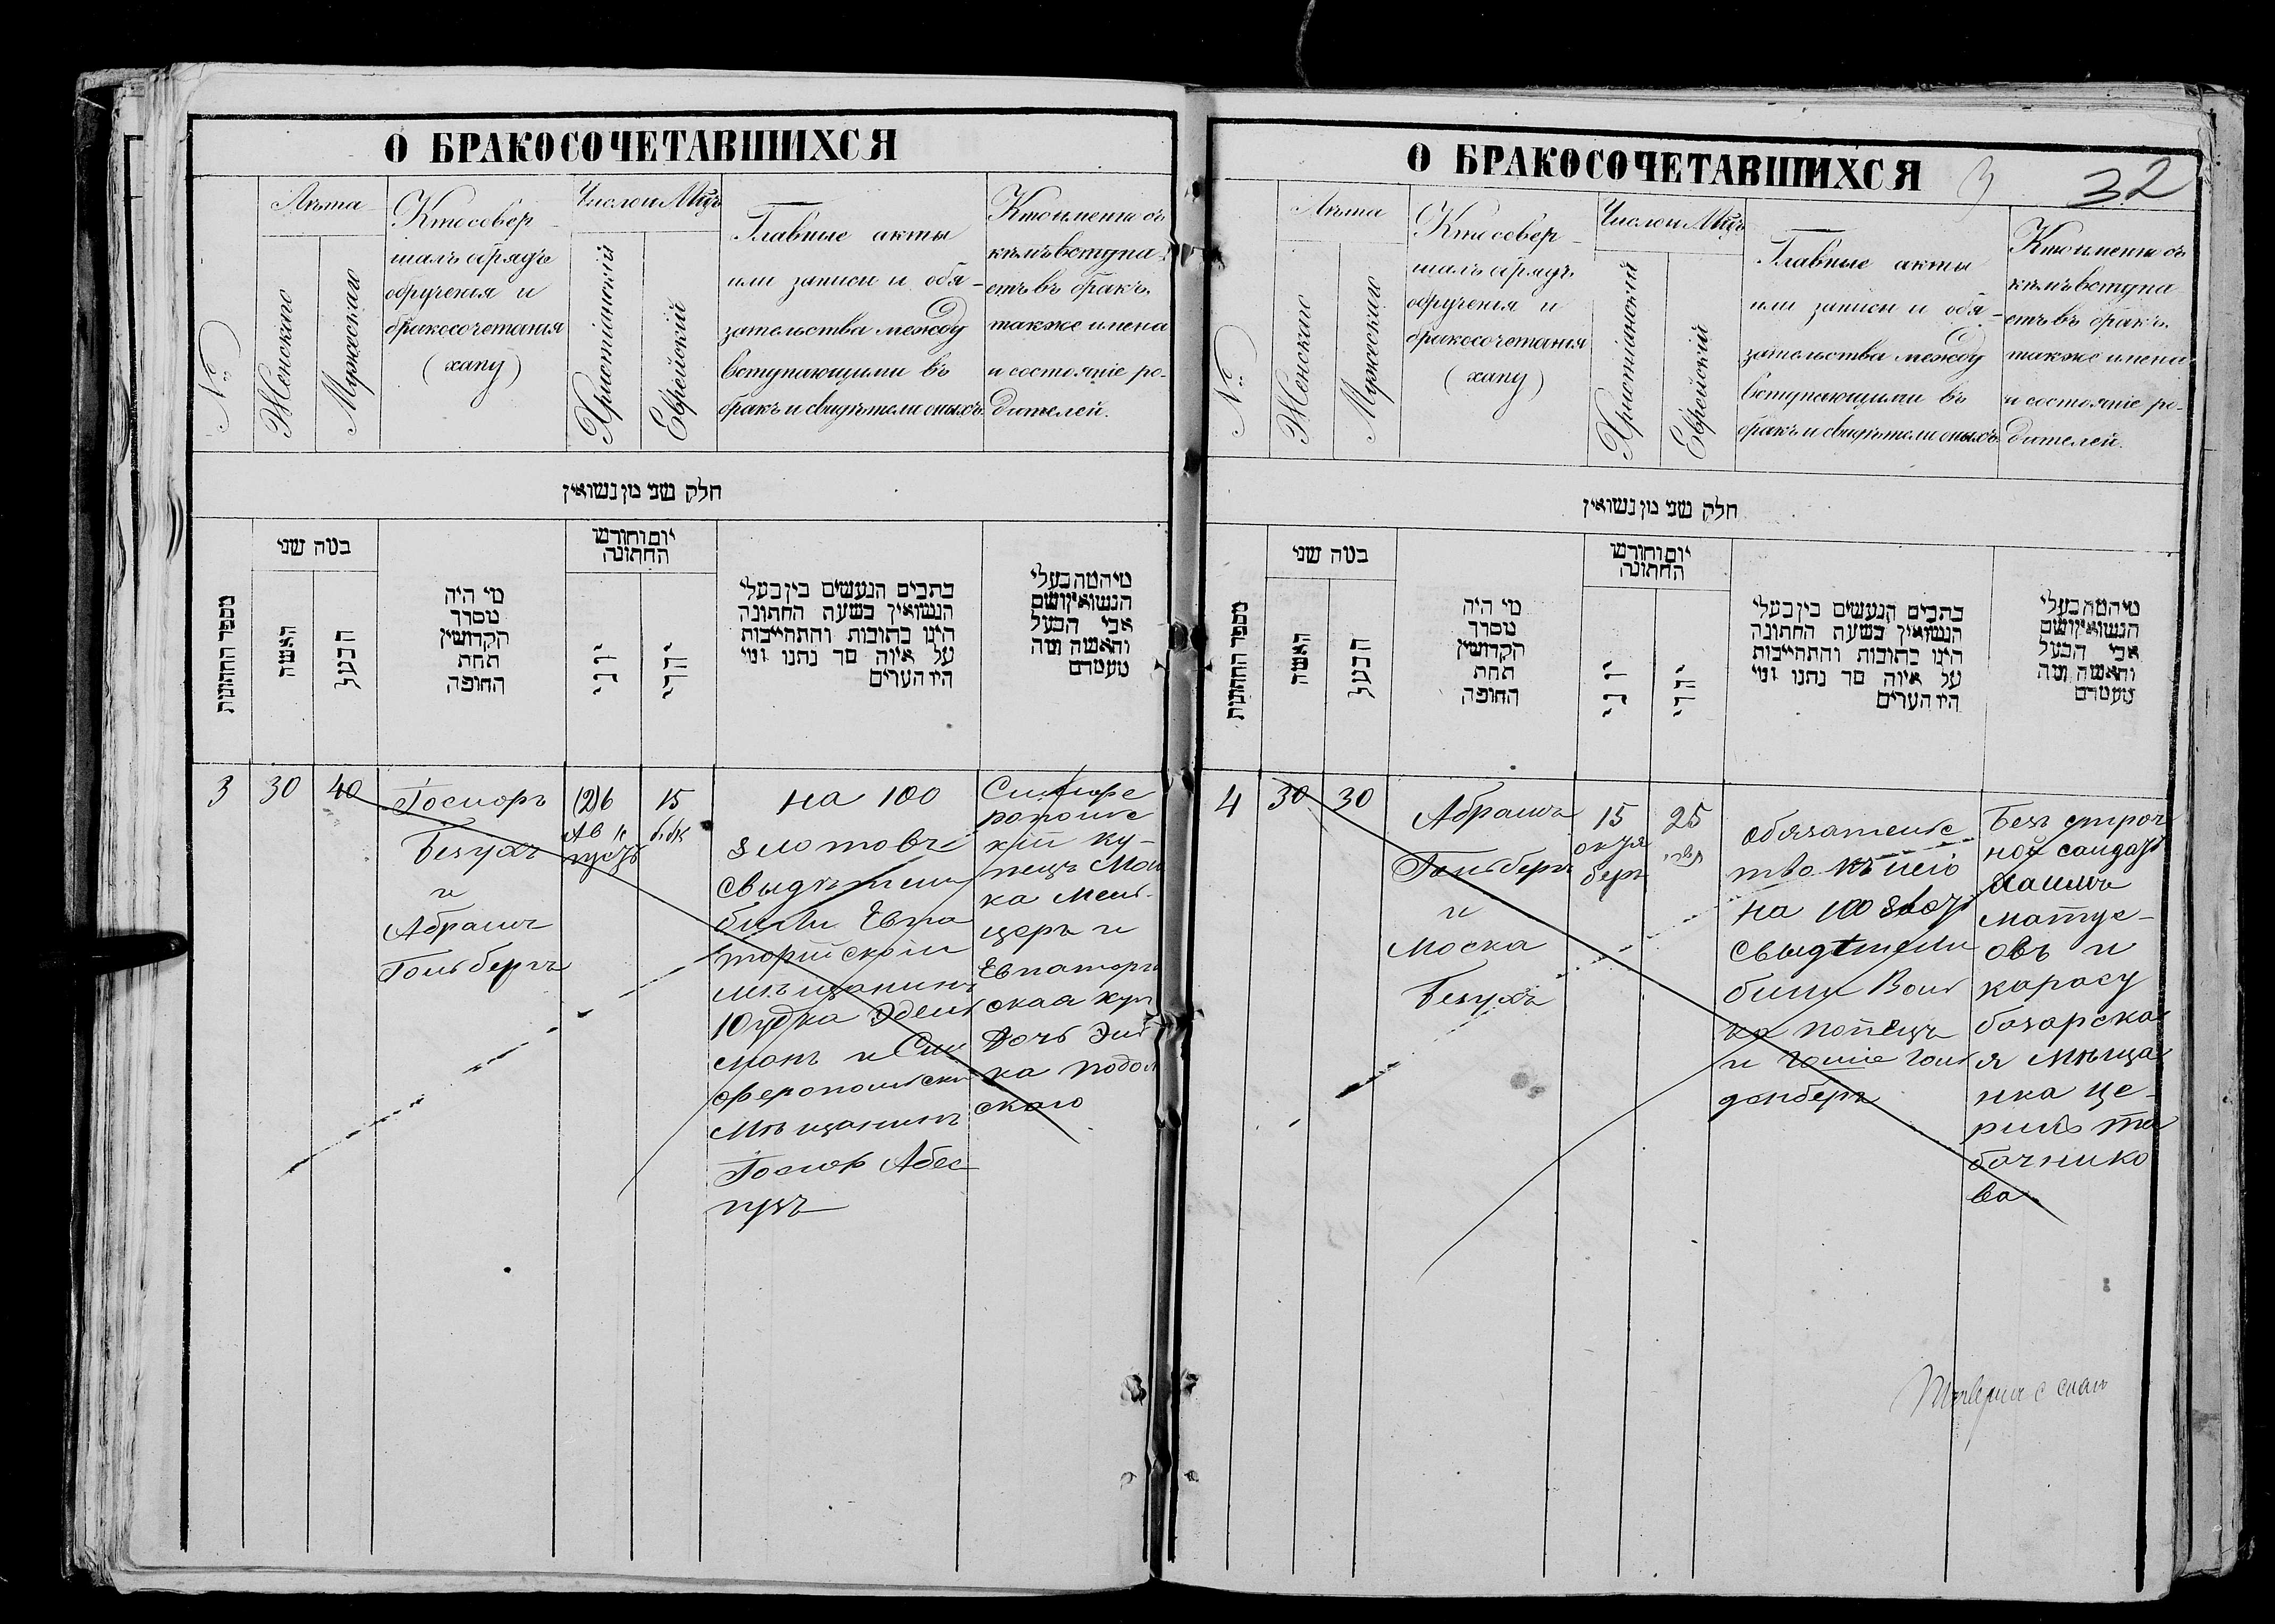 О БРАКОСОЧЕТАВШИХСЯ
№
Лѣта
Женскаго
Мужескаго
Кто совер-
шалъ обрядъ
обрученія и
бракосочетанія
(хапу)
Число и Мцъ
Христіанскій
Еврейскій
Главные акты
или записи и обя-
зательства между
вступающими въ
бракъ и свидѣтели оныхъ.
Кто именно съ
кѣмъ вступа-
етъ въ бракъ.
также имена
и состояніе ро-
дителей.
חלק שני מן נשואין
מספר החתונות
כמה שני
האשה
הבעל
מי היה
מסדר
הקדושין
תחת
החופה
יום וחודש
החתונה
יוני
יהודי
כתבים הנעשים בין בעלי
הנשואין בשעת החתונה
היינו כתובות והתחייבות
על איזה סך נתנו ומי
היו העדים
מי המה בעלי
הנשואין ושם
אבי הבעל
והאשה ומה
מעמדם
3
30
40
Госиоръ
Безухъ
и
Абрамъ
Гольбергъ
(2)6
Ав
густъ
15
на 100
злотовъ
свыдѣтели
били Евпа
торійскій
мѣщанинъ
Юдка Эдель
манъ и Сим
феропольски
мѣщанинъ
Симфе
ропольс
кій ку-
пецъ
ка Мель-
церъ и
Евпатор
ская куп
дочь
ка подол
скаго
О БРАКОСОЧЕТАВШИХСЯ
32
№
Лѣта
Женскаго
Мужескаго
Кто совер-
шалъ обрядъ
обрученія и
бракосочетанія
(хапу)
Число и Мцъ
Христіанскій
Еврейскій
Главные акты
или записи и обя-
зательства между
вступающими въ
бракъ и свидѣтели оныхъ.
Кто именно съ
кѣмъ вступа-
етъ въ бракъ.
также имена
и состояніе ро-
дителей.
חלק שני מן נשואין
מספר החתונות
כמה שני
האשה
הבעל
מי היה
מסדר
הקדושין
תחת
החופה
יום וחודש
החתונה
יוני
יהודי
כתבים הנעשים בין בעלי
הנשואין בשעת החתונה
היינו כתובות והתחייבות
על איזה סך נתנו ומי
היו העדים
מי המה בעלי
הנשואין ושם
אבי הבעל
והאשה ומה
מעמדם
4
30
30
Абрамъ
Гольбергъ
и
Моска
Безухъ
15
октя
бръ
25
תשרי
обязательс
тво
на 100 злот
свыдѣтели
били
и
денберъ
Безъ сроч
ной солдатъ
Хаимъ
матус-
овъ и
карасу
базарска
я мѣща
нка це-
рилъ та
бачнико
ва